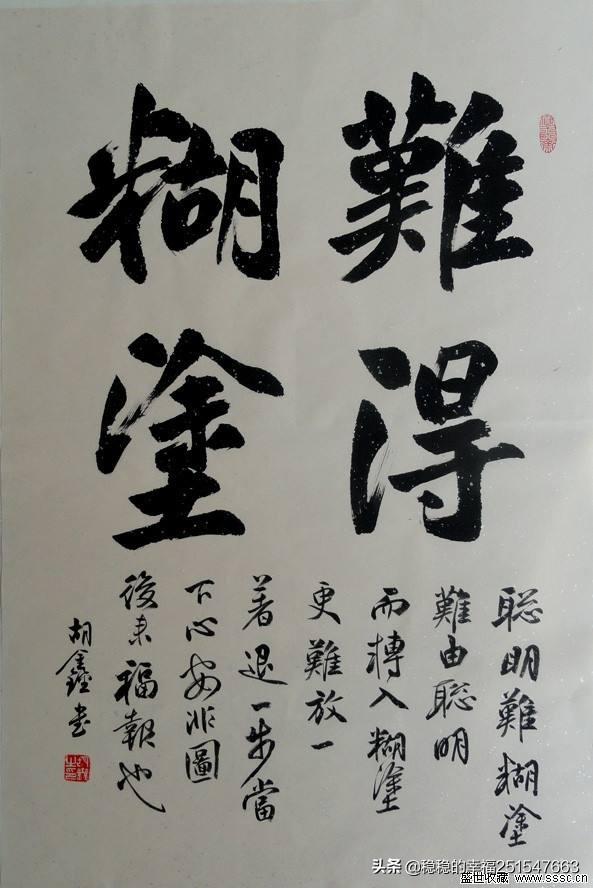 難得
糊塗
聪明難糊塗
難由聪明
而轉入糊塗
更難放一
著退一步當
下心安非圖
後来福報也
胡鑫书
头条 @稳稳的幸福251547663
盛世收藏 www.sssc.cn